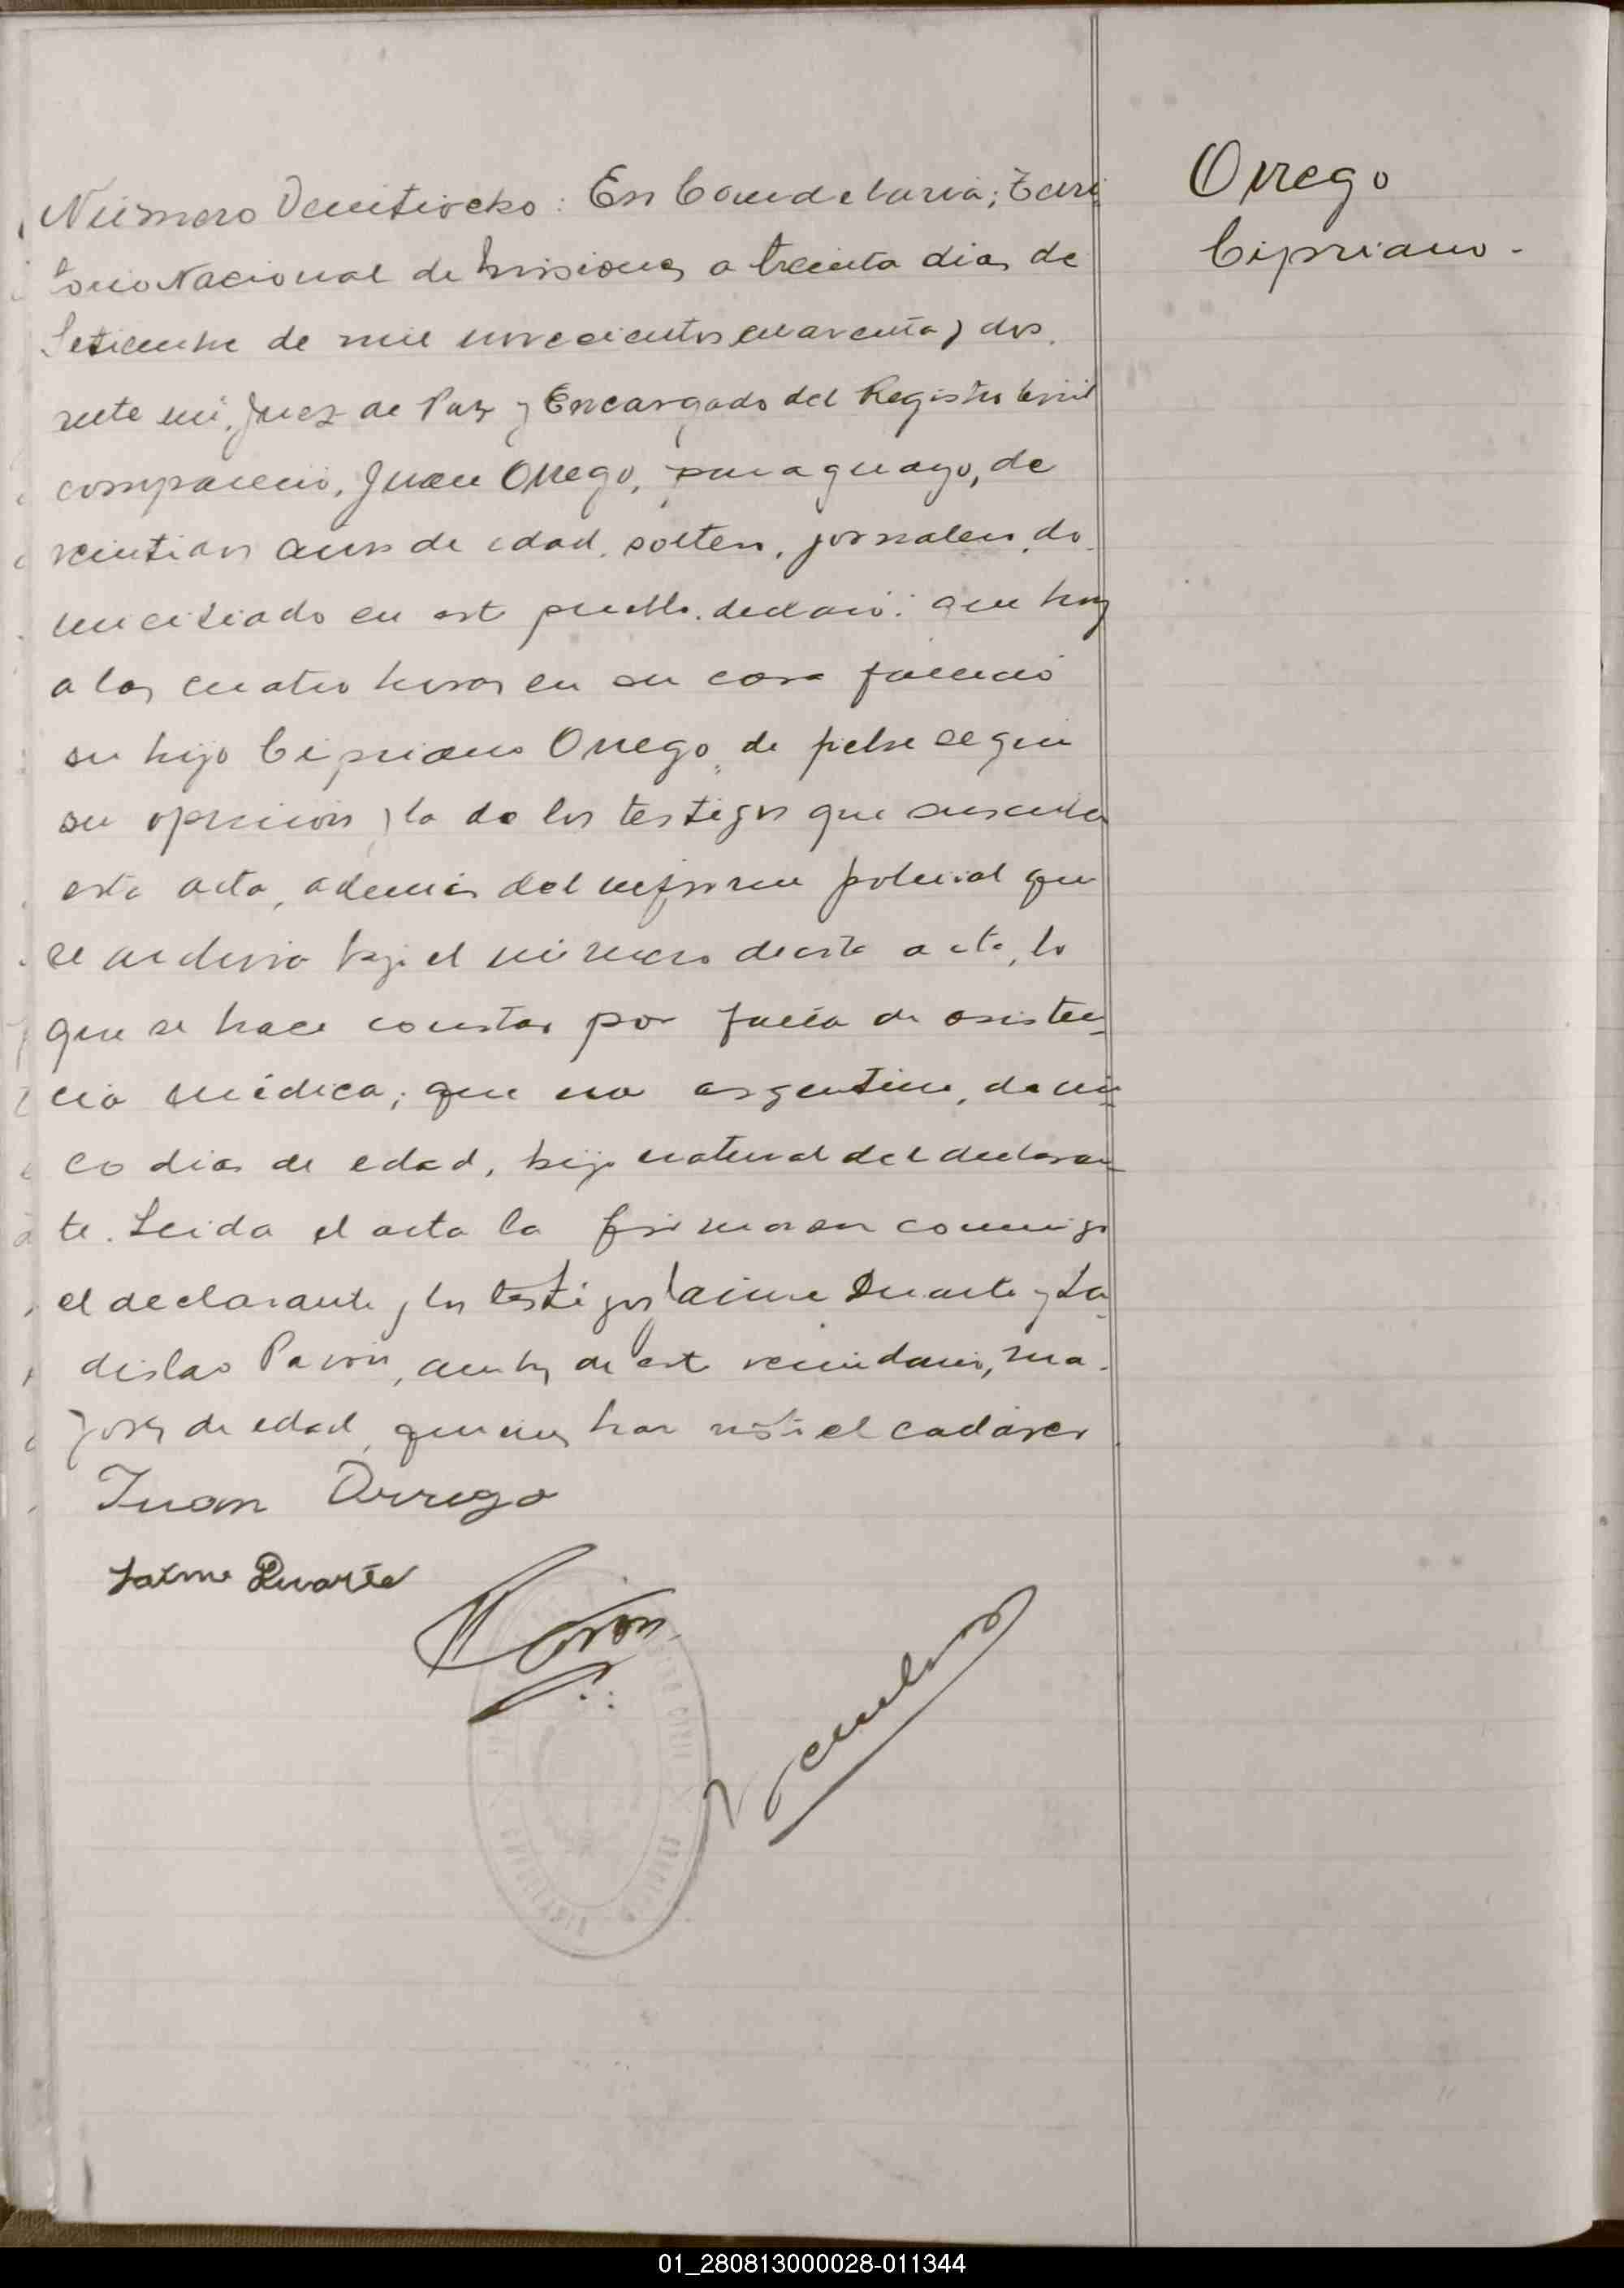 Número Veintiocho: En Candelaria; Terri
torio Nacional de Misiones a treinta dias de
Setiembre de mil novecientos cuarenta y dos.
ante mi, Juez de Paz y Encargado del Registro Civil
compareció, Juan Orrego, paraguayo, de
veintidos años de edad, soltero, jornalero, do-
miciliado en este pueblo. declaró: que hoy
a las cuatro horas en su casa falleció
su hijo Cipriano Orrego, de fiebre según
su opinion y la de los testigos que suscriben
esta acta, además del informe policial que
se archiva bajo el número de esta acta, lo
que se hace constar por falta de asisten-
cia médica; que era argentino, de cin-
co dias de edad, hijo natural del declaran-
te. Leida el acta la firmaron conmigo
el declarante y los testigos Jaime Duarte y La-
dislao Pavón, ambos de este vecindario, ma-
yores de edad, quienes han visto el cadáver
Juan Orrego
Jaime Duarte
Orrego
Cipriano-
01_280813000028-011344